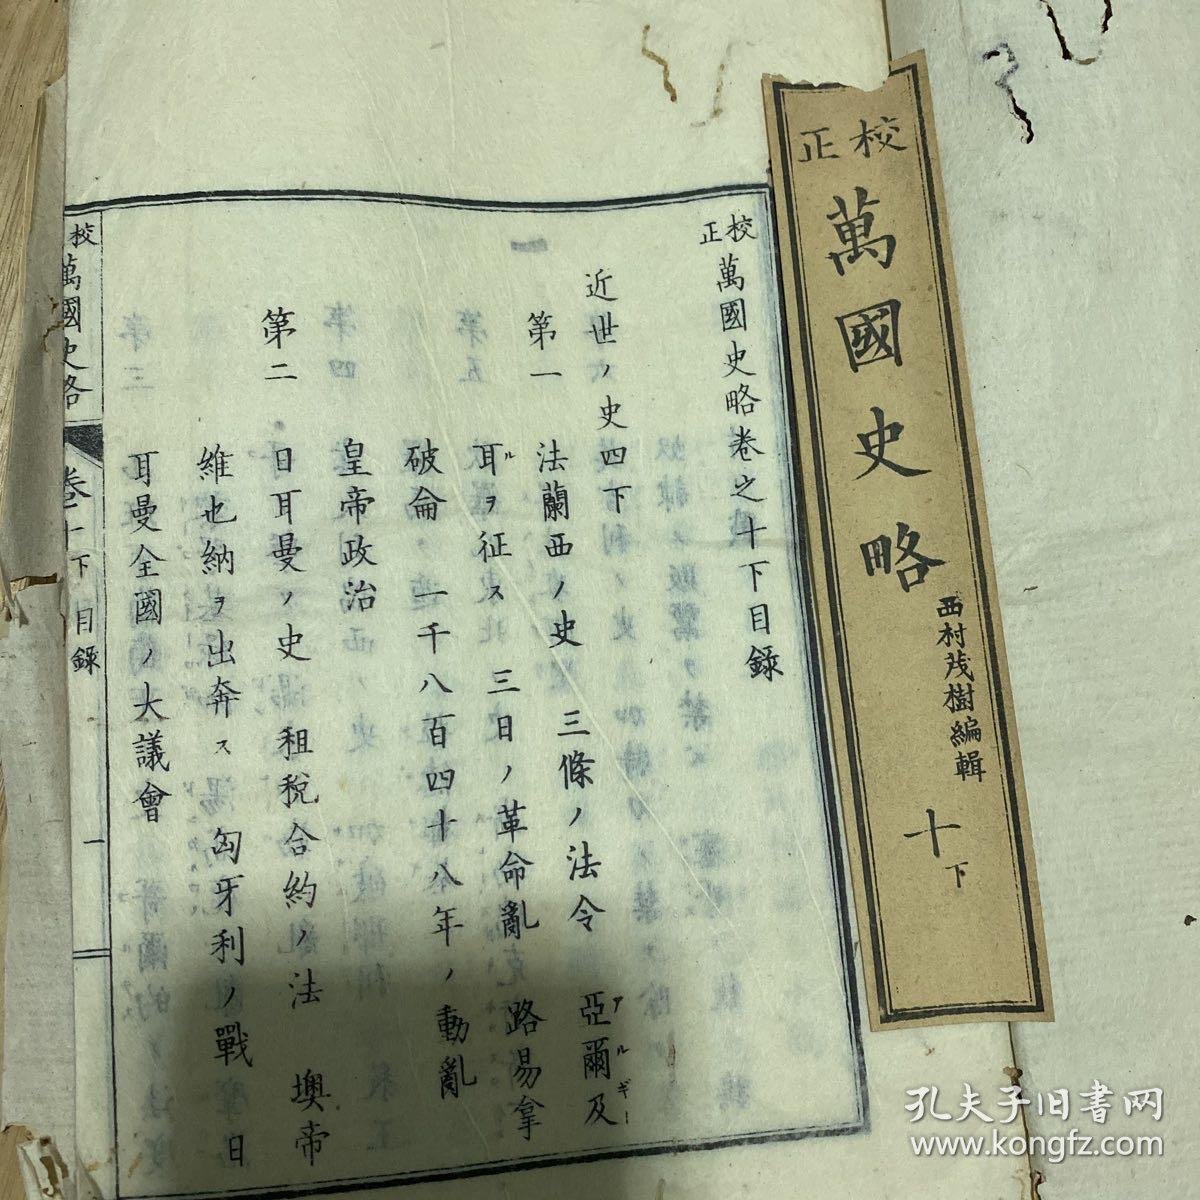 校正
萬國史略
西村茂樹編輯
十下
校正萬國史略卷之十下目録
近世ノ史四下
第一 法蘭西ノ史 三條ノ法令 亞爾及
アルギー
耳ヲ征ス 三日ノ革命亂 路易拿
ル
破侖 一千八百四十八年ノ動亂
皇帝政治
第二 日耳曼ノ史 租税合約ノ法 墺帝
維也納ヲ出奔ス 匈牙利ノ戰 日
耳曼全國ノ大議會
校萬國史略 卷十下 目録 一
孔夫子旧书网
www.kongfz.com